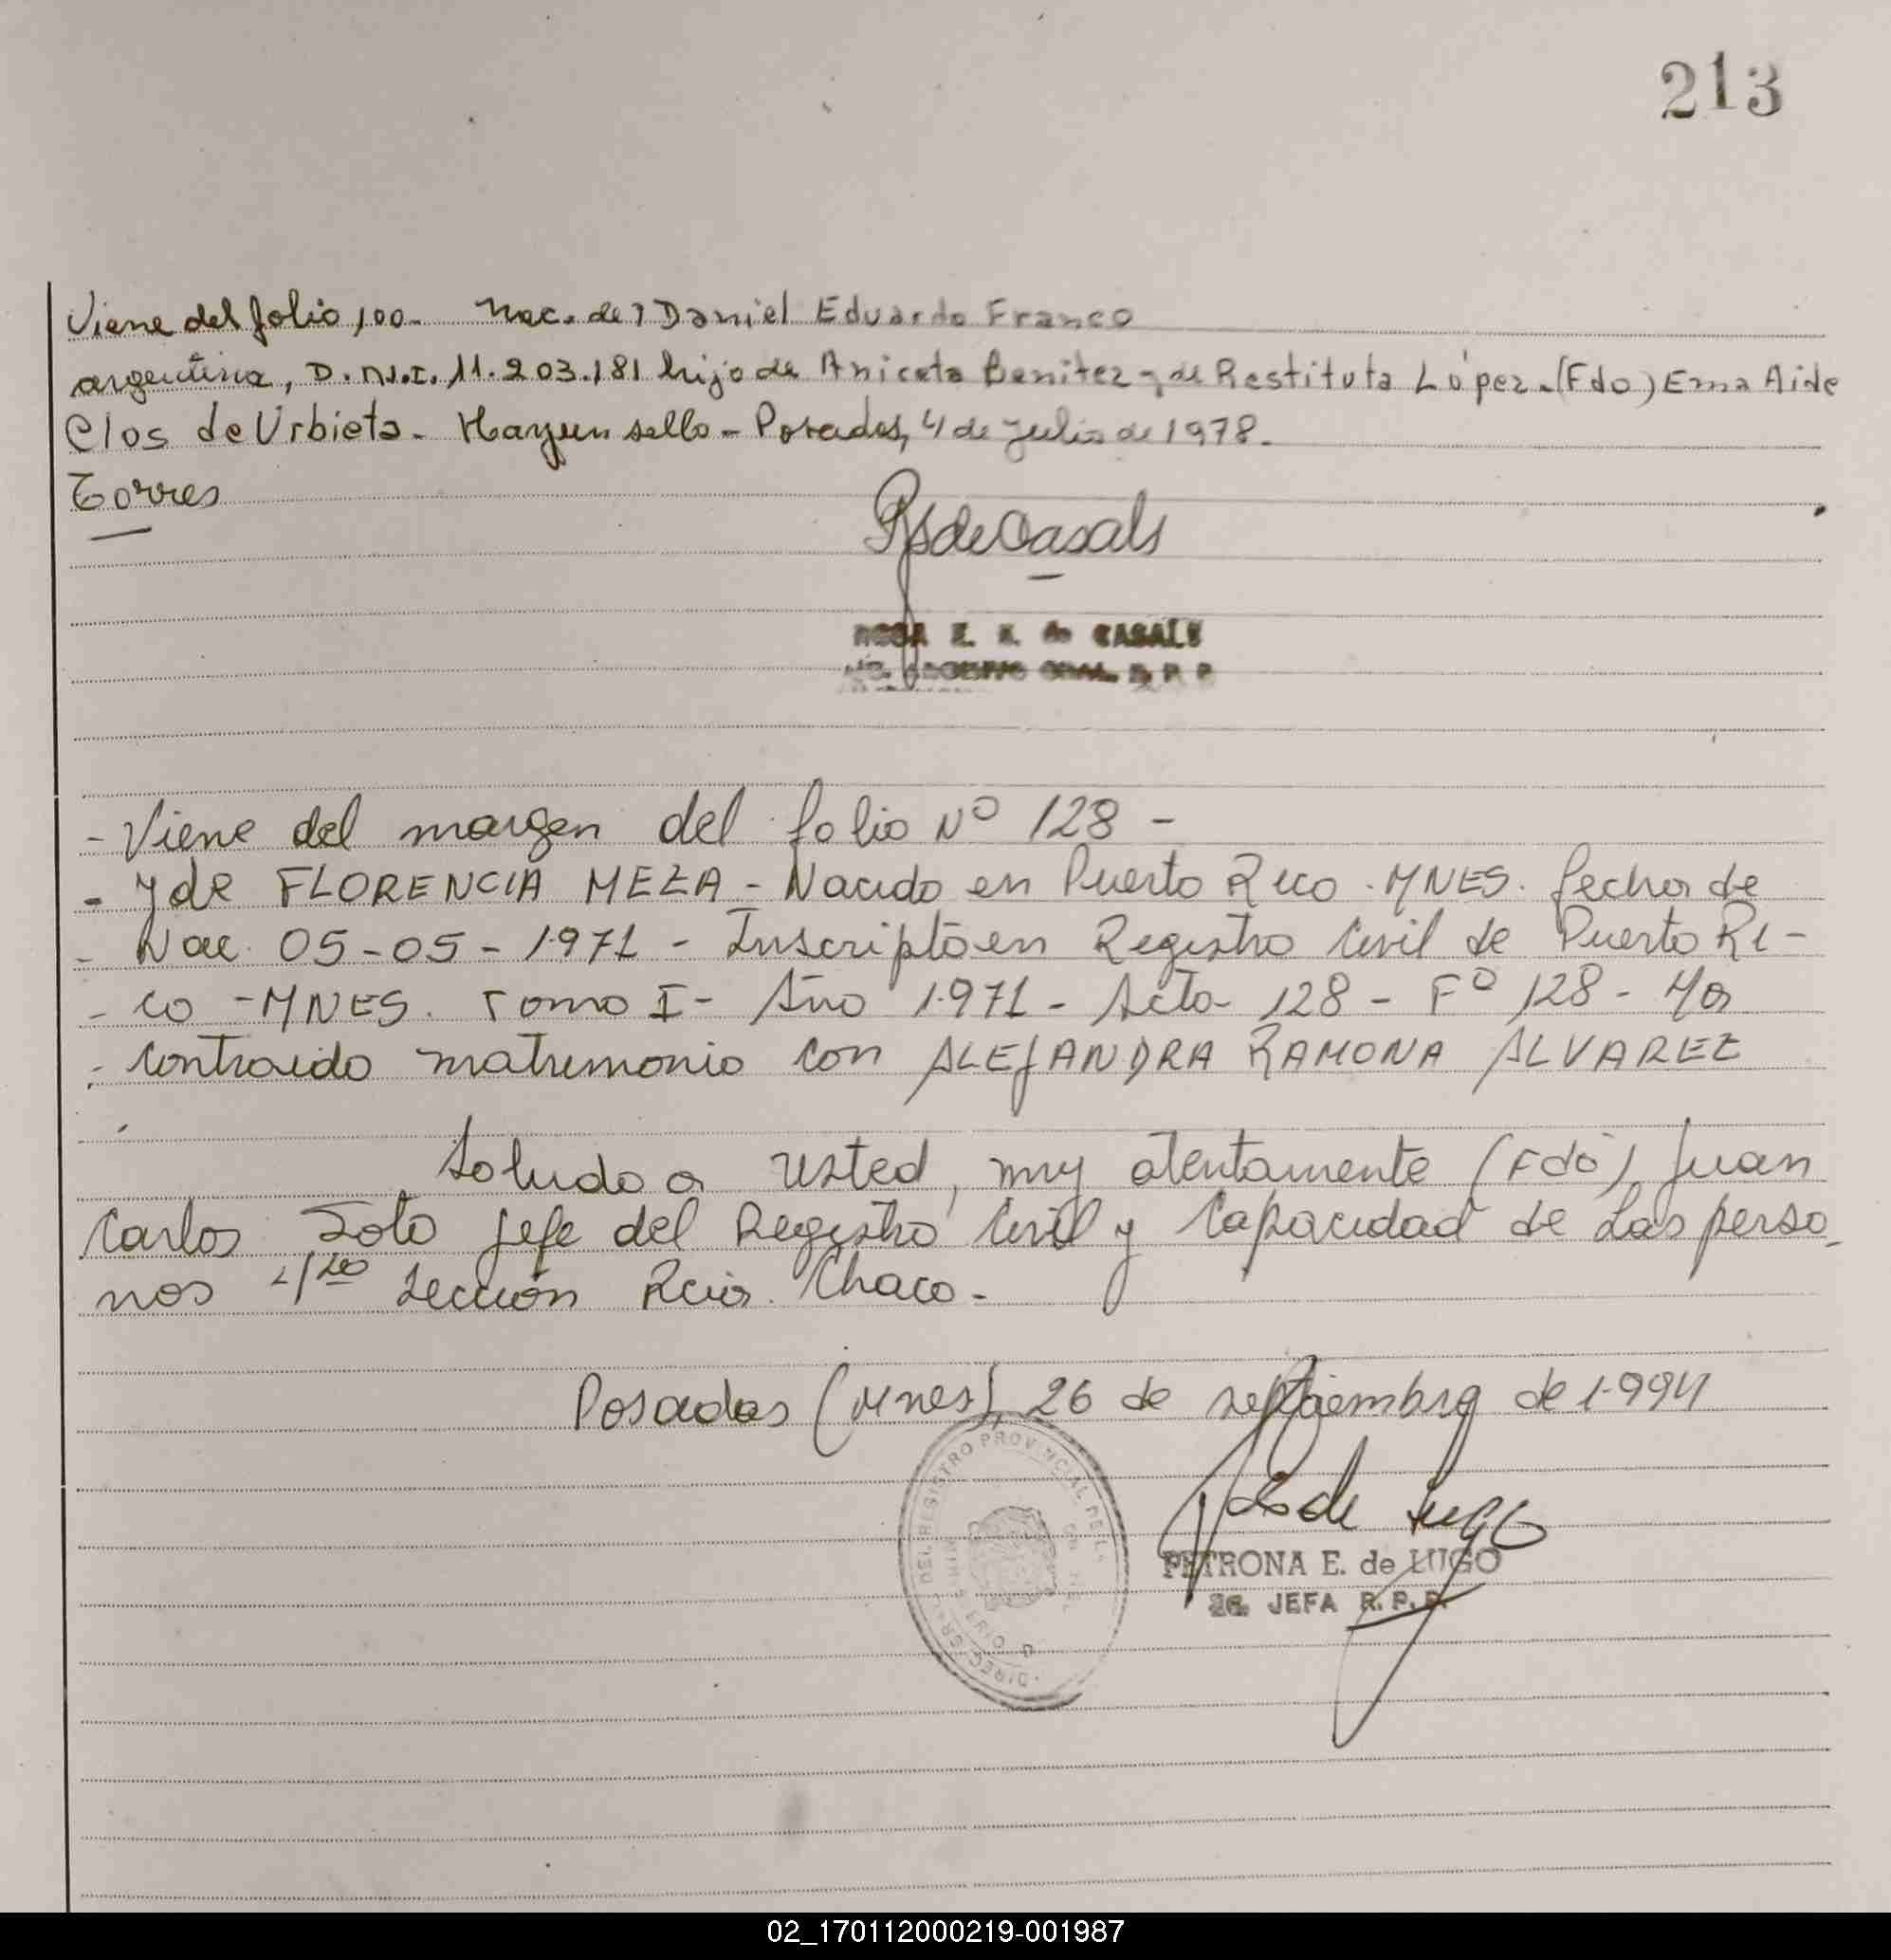 213
Viene del folio 100. Nac. de: Daniel Eduardo Franco
argentina, D.N.I. 11.203.181 hijo de Aniceto Benitez y de Restituta López.(Fdo) Ema Aide
Clos de Urbieta. Hay un sello - Posadas, 4 de julio de 1978.
Torres
de Casals
ROSA E. de CASALS
R. P. P.
- Viene del margen del folio Nº 128 -
- y de FLORENCIA MEZA - Nacido en Puerto Rico - MNES. fecha de
- Nac. 05-05-1971 - Inscripto en Registro Civil de Puerto Ri-
- co - MNES. Tomo I - Año 1.971 - Acta 128 - Fº 128 - Ha
- Contraido matrimonio con ALEJANDRA RAMONA ALVAREZ
Saludo a usted, muy atentamente (Fdo) Juan
Carlos Soto Jefe del Registro Civil y Capacidad de Las perso
nas 4/ta Sección Rcia. Chaco -
Posadas (Mnes), 26 de septiembre de 1.994
DEL REGISTRO PROVINCIAL DE L
de Lugo
PETRONA E. de LUGO
JEFA R. P. P.
02_170112000219-001987